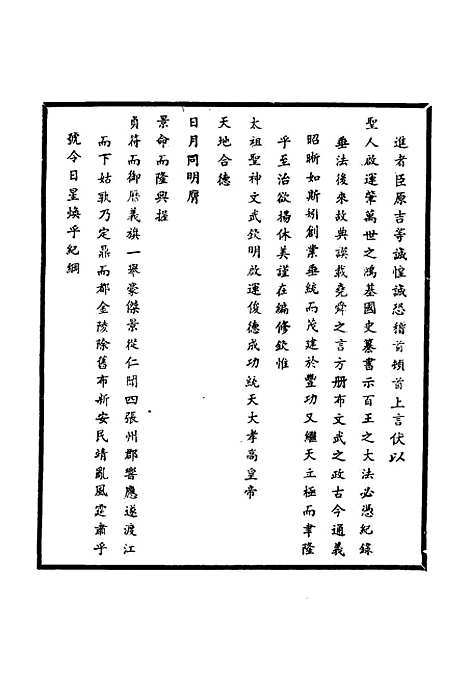 進者臣原吉等誠惶誠恐稽首頓首上言伏以
聖人啟運肇萬世之鴻基國史纂書示百王之大法必憑紀錄
垂法後來故典謨載堯舜之言方册布文武之政古今通義
昭晰如斯矧創業垂統而茂建於豐功又繼天立極而聿隆
乎至治欲揚休美謹在編修欽惟
太祖聖神文武欽明啟運俊德成功統天大孝高皇帝
天地合德
日月同明膺
景命而隆興握
貞符而御曆義旗一舉豪傑景從仁聞四張州郡響應遂渡江
而下姑孰乃定鼎而都金陵除舊布新安民靖亂風霆肅乎
號令日星煥乎紀綱